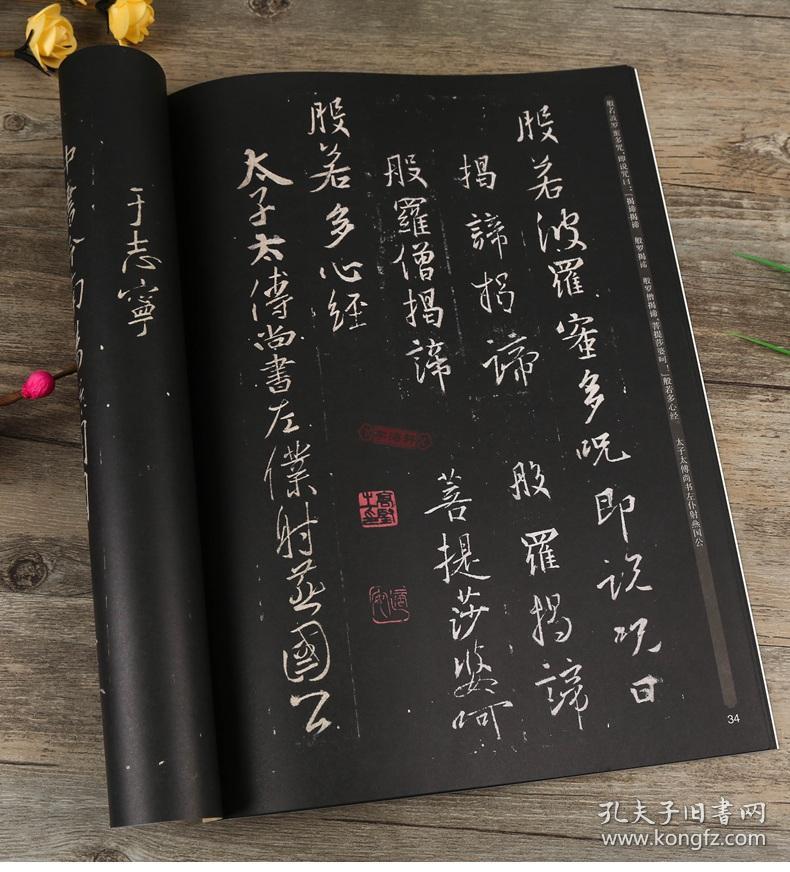 般若波羅蜜多呪即説呪曰
揭諦揭諦 般羅揭諦
般羅僧揭諦 菩提莎婆呵
般若多心經
太子太傅尚書左僕射燕國公
于志寧
中書令
般若波罗蜜多咒，即说咒曰：“揭谛揭谛 般罗揭谛 般罗僧揭谛，菩提莎婆呵！”般若多心经 太子太傅尚书左仆射燕国公
34
孔夫子旧书网
www.kongfz.com